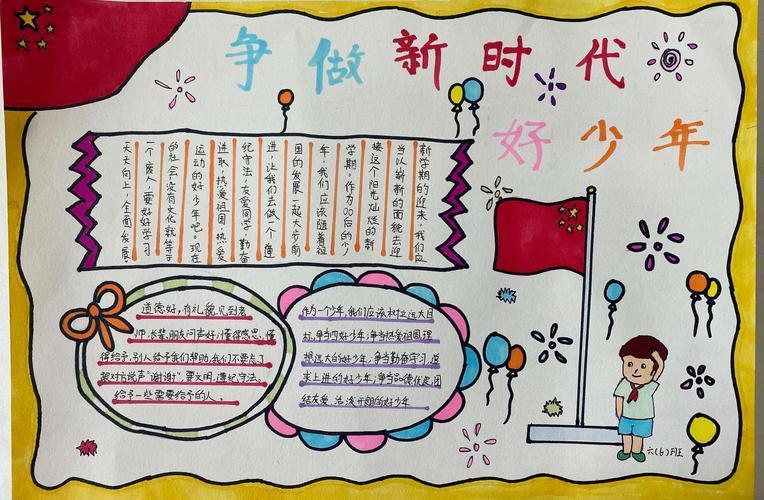 争做新时代
好少年
新学期的迎来,我们应
当以崭新的面貌去迎
接这个阳光灿烂的新
学期,作为00后的少
年,我们应该随着祖
国的发展一起大步前
进,让我们去做一个遵
纪守法,友爱同学,勤奋
进取,热爱祖国,热爱
运动的好少年吧。现在
的社会没有文化就等于
一个废人,要好好学习
天天向上,全面发展。
道德好,有礼貌,见到老
师,长辈,朋友问声好;懂得感恩,懂
得给予,别人给予我们帮助,我们不要忘了
跟对方说声“谢谢”要文明,遵纪守法。
给予一些需要给予的人。
作为一个少年,我们应该树立远大目
标,争当四好少年;争当热爱祖国、理
想远大的好少年;争当勤奋学习、追
求上进的好少年;争当品德优良、团
结友爱、活泼开朗的好少年
六(6)班